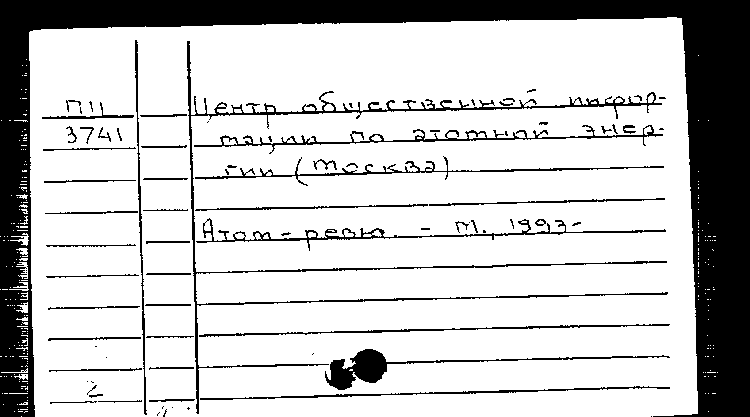 П11 Центр общественной инфор-
3741 мации по атомной энер-
гии (Москва)
Атом-ревю. - М., 1993-
2